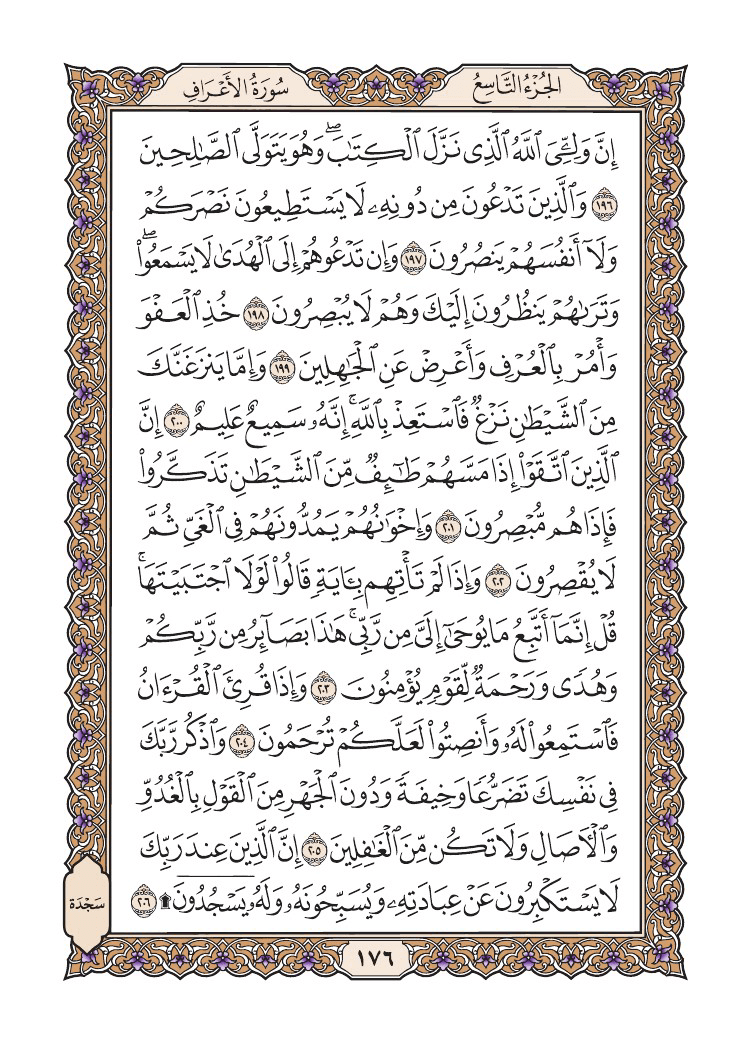 الجُزْءُ التَّاسِعُ
سُورَةُ الأَعْرَافِ
إِنَّ وَلِـِّۧيَ ٱللَّهُ ٱلَّذِى نَزَّلَ ٱلْكِتَٰبَ ۖ وَهُوَ يَتَوَلَّى ٱلصَّٰلِحِينَ
١٩٦ وَٱلَّذِينَ تَدْعُونَ مِن دُونِهِۦ لَا يَسْتَطِيعُونَ نَصْرَكُمْ
وَلَآ أَنفُسَهُمْ يَنصُرُونَ ١٩٧ وَإِن تَدْعُوهُمْ إِلَى ٱلْهُدَىٰ لَا يَسْمَعُوا۟ ۖ
وَتَرَىٰهُمْ يَنظُرُونَ إِلَيْكَ وَهُمْ لَا يُبْصِرُونَ ١٩٨ خُذِ ٱلْعَفْوَ
وَأْمُرْ بِٱلْعُرْفِ وَأَعْرِضْ عَنِ ٱلْجَٰهِلِينَ ١٩٩ وَإِمَّا يَنزَغَنَّكَ
مِنَ ٱلشَّيْطَٰنِ نَزْغٌ فَٱسْتَعِذْ بِٱللَّهِ ۚ إِنَّهُۥ سَمِيعٌ عَلِيمٌ ٢٠٠ إِنَّ
ٱلَّذِينَ ٱتَّقَوْا۟ إِذَا مَسَّهُمْ طَٰٓئِفٌ مِّنَ ٱلشَّيْطَٰنِ تَذَكَّرُوا۟
فَإِذَا هُم مُّبْصِرُونَ ٢٠١ وَإِخْوَٰنُهُمْ يَمُدُّونَهُمْ فِى ٱلْغَىِّ ثُمَّ
لَا يُقْصِرُونَ ٢٠٢ وَإِذَا لَمْ تَأْتِهِم بِـَٔايَةٍ قَالُوا۟ لَوْلَا ٱجْتَبَيْتَهَا ۚ
قُلْ إِنَّمَآ أَتَّبِعُ مَا يُوحَىٰٓ إِلَىَّ مِن رَّبِّى ۚ هَٰذَا بَصَآئِرُ مِن رَّبِّكُمْ
وَهُدًى وَرَحْمَةٌ لِّقَوْمٍ يُؤْمِنُونَ ٢٠٣ وَإِذَا قُرِئَ ٱلْقُرْءَانُ
فَٱسْتَمِعُوا۟ لَهُۥ وَأَنصِتُوا۟ لَعَلَّكُمْ تُرْحَمُونَ ٢٠٤ وَٱذْكُر رَّبَّكَ
فِى نَفْسِكَ تَضَرُّعًا وَخِيفَةً وَدُونَ ٱلْجَهْرِ مِنَ ٱلْقَوْلِ بِٱلْغُدُوِّ
وَٱلْـَٔاصَالِ وَلَا تَكُن مِّنَ ٱلْغَٰفِلِينَ ٢٠٥ إِنَّ ٱلَّذِينَ عِندَ رَبِّكَ
لَا يَسْتَكْبِرُونَ عَنْ عِبَادَتِهِۦ وَيُسَبِّحُونَهُۥ وَلَهُۥ يَسْجُدُونَ ۩ ٢٠٦
سَجْدَة
١٧٦